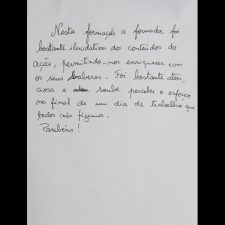 Nesta formação a formadora foi
bastante elucidativa do conteúdos da
ação, permitindo-nos enriquecer com
os seus saberes. Foi bastante aten-
ciosa e soube perceber o esforço
no final de um dia de trabalho que
todos nós fizemos.
Parabéns!